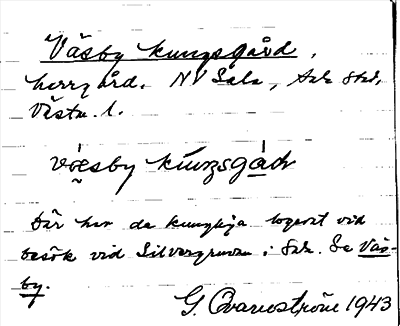 Väsby kungsgård,
herrgård. NV Sala, Sala stad,
Västm. l.
väsby kúŋsgà̀ḍ
Där har de kungliga logerat vid
besök vid Silvergruvan i Sala. Se Väs-
by.
G. Evanström 1943